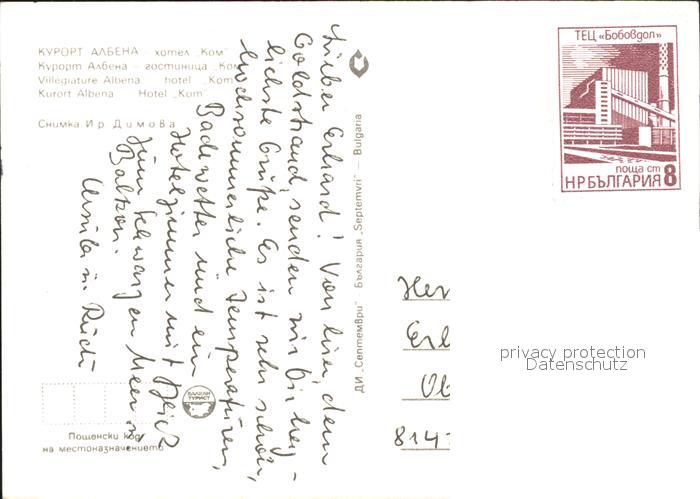 КУРОРТ АЛБЕНА - хотел „Ком"
Курорт Албена - гостиница „Ком
Villégiature Albena hotel „Kom
Kurort Albena Hotel „Kom
Снимка Ир Димова
Lieber Erhard! Von hier, dem
Goldstrand, senden wir Dir herz-
lichste Grüße. Es ist sehr schön,
hochsommerliche Temperaturen,
Badewetter und ein
Hotelzimmer mit Blick
zum Schwarzen Meer u.
Balkon.
Ursula u. Rudi
БАЛКАН
ТУРИСТ
Пощенски код
на местоназначението
ДИ „Септември" България „Septemvri" — Bulgaria
ТЕЦ «Бобовдол»
поща ст
НРБЪЛГАРИЯ 8
Her
Erh
Ob
8141
privacy protection
Datenschutz